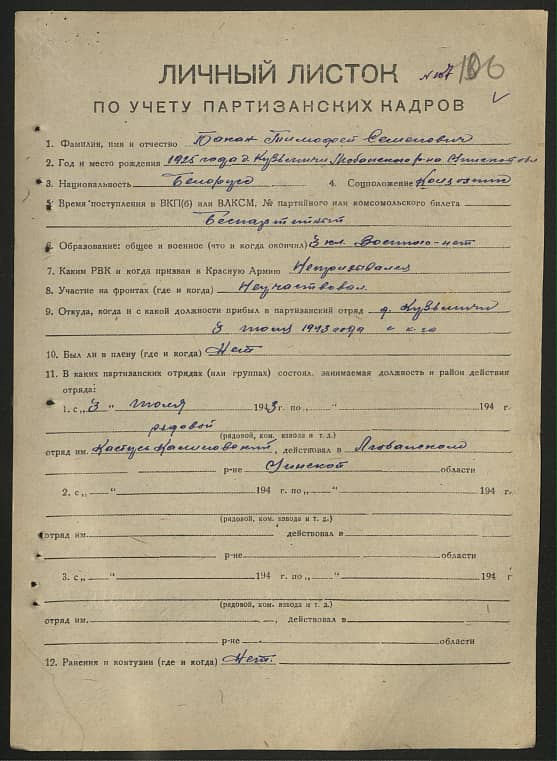 ЛИЧНЫЙ ЛИСТОК № 107 106
ПО УЧЕТУ ПАРТИЗАНСКИХ КАДРОВ
1. Фамилия, имя и отчество Тимофей Семенович
2. Год и место рождения 1925 года д. Кузьмичи Любанского р-на Минской обл
3. Национальность Белорус 4. Соцположение Колхозник
5. Время поступления в ВКП(б) или ВЛКСМ, № партийного или комсомольского билета
Беспартийный
6. Образование: общее и военное (что и когда окончил) 3 кл. Военного-нет
7. Каким РВК и когда призван в Красную Армию Непризывался
8. Участие на фронтах (где и когда) Неучаствовал
9. Откуда, когда и с какой должности прибыл в партизанский отряд д. Кузьмичи
3 июля 1943 года
10. Был ли в плену (где и когда) Нет
11. В каких партизанских отрядах (или группах) состоял, занимаемая должность и район действия
отряда:
1. с „3" июля 1943 г. по „ " 194 г.
рядовой
(рядовой, ком. взвода и т. д.)
отряд им. Кастуся Калиновский, действовал в Любанском
р-не Минской области
2. с „ " 194 г. по „ " 194 г.
(рядовой, ком. взвода и т. д.)
отряд им. действовал в
р-не области
3. с „ " 194 г. по „ " 194 г
(рядовой, ком. взвода и т. д.)
отряд им. , действовал в
р-не области
12. Ранения и контузии (где и когда) Нет.